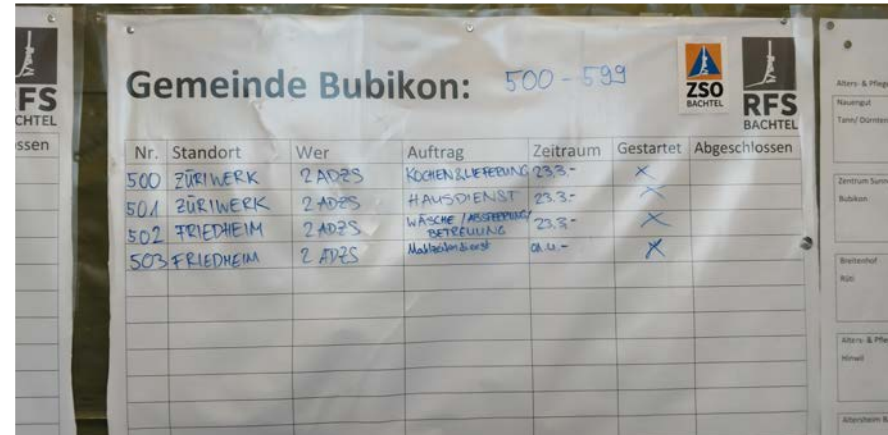 FS
CHTEL
ssen
Gemeinde Bubikon: 500 - 599
ZSO
BACHTEL
RFS
BACHTEL
Nr. Standort Wer Auftrag Zeitraum Gestartet Abgeschlossen
500 ZÜRIWERK 2 ADZS KOCHEN & LIEFERUNG 23.3.- X
501 ZÜRIWERK 2 ADZS HAUSDIENST 23.3.- X
502 FRIEDHEIM 2 ADZS WÄSCHE / BETREUUNG 23.3.- X
503 FRIEDHEIM 2 ADZS Mahlzeitendienst X
Alters- & Pflege
Nauengut
Tann/ Dürnten
Zentrum Sunn
Bubikon
Breitenhof
Rüti
Alters- & Pfle
Hinwil
Altersheim